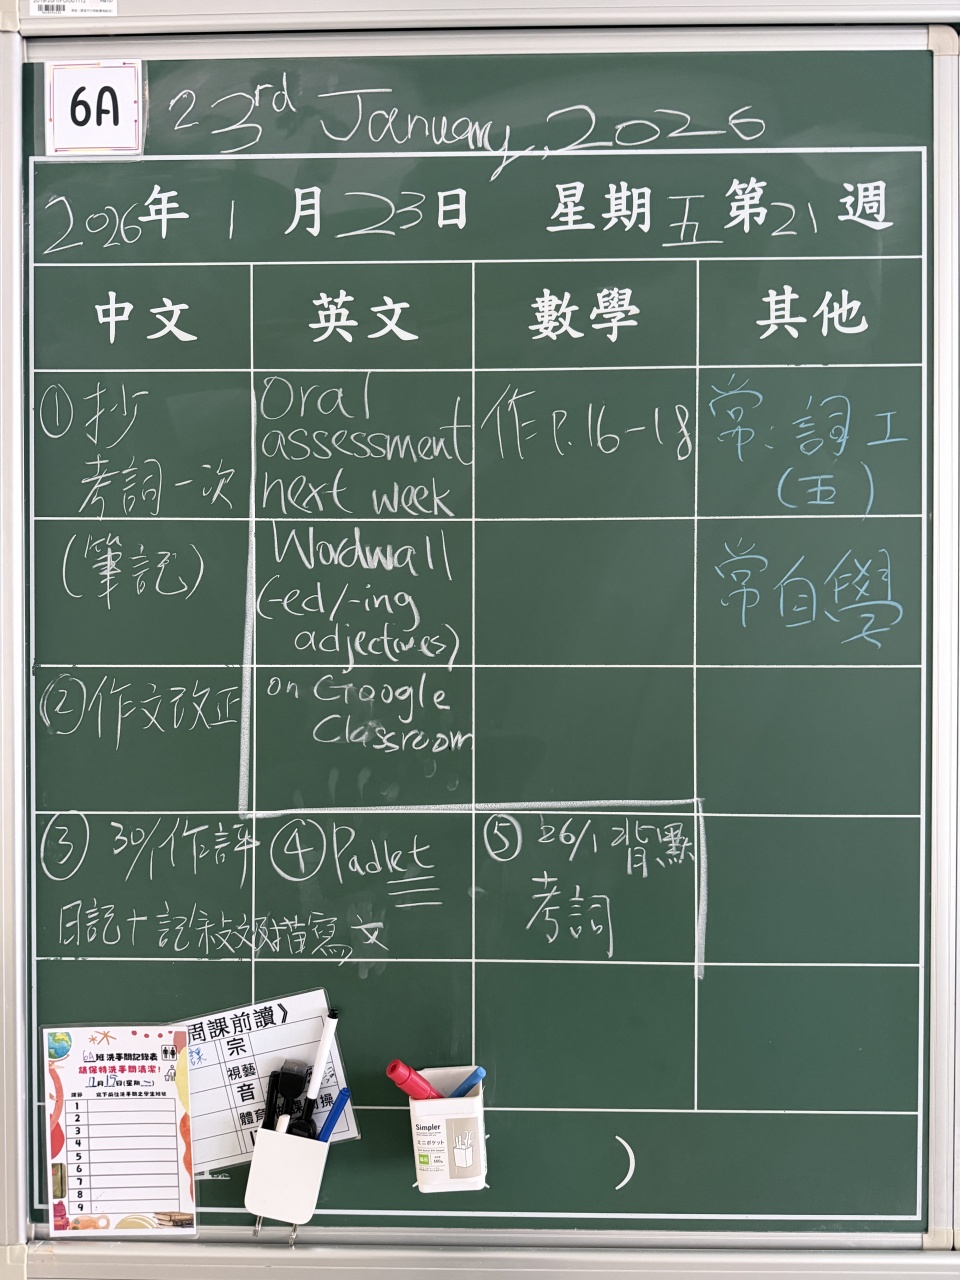 6A
23rd January, 2026
2026年1月23日 星期五 第21週
中文 英文 數學 其他
①抄
考詞一次
(筆記)
②作文改正
Oral
assessment
next week
Wordwall
(-ed/-ing
adjectives)
on Google
Classroom
作P.16-18
常:詞工
(五)
常自學
③ 30/1作評
日記+記敍文及描寫文
④Padlet
⑤ 26/1 背默
考詞
周課前讀》
宗
視藝
音
體育
6A班洗手間記錄表
請保持洗手間清潔!
課節
寫下前往洗手間之學生班號
1
2
3
4
5
6
7
8
9
Simpler
ミニポケット
)